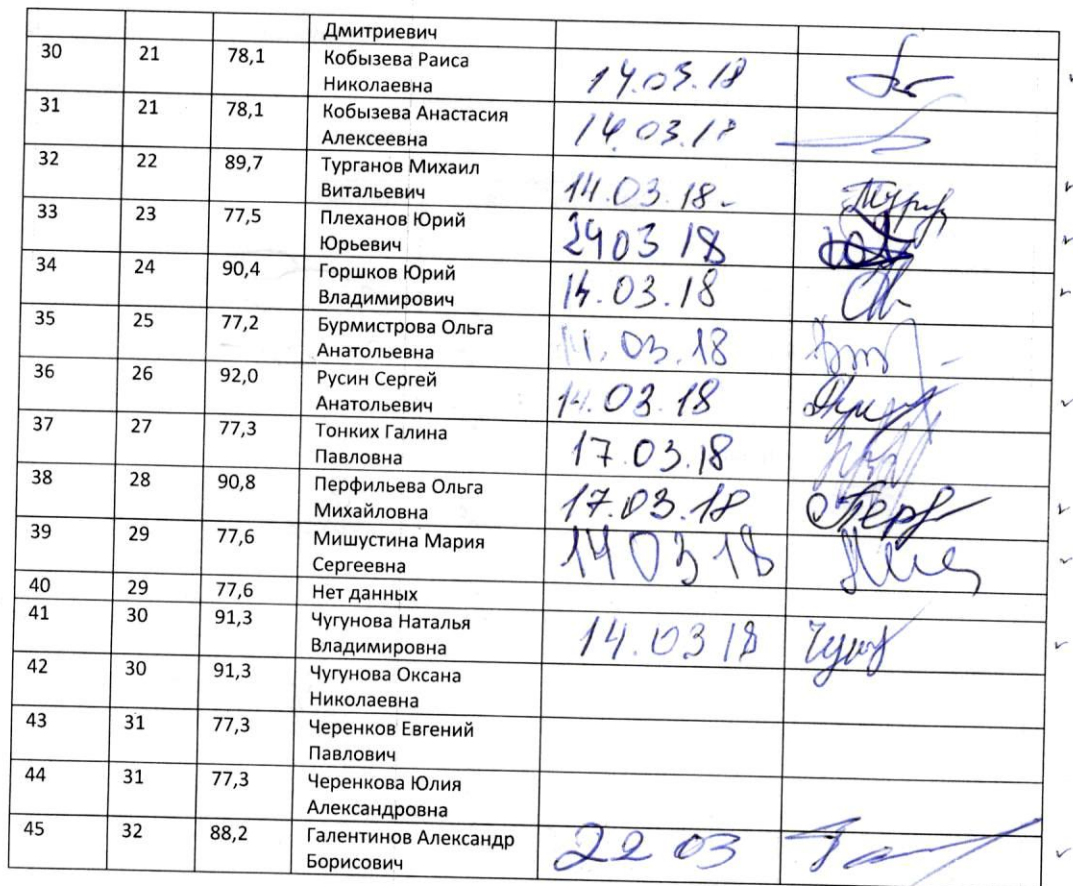 Дмитриевич
30 21 78,1 Кобызева Раиса
Николаевна 14.03.18
31 21 78,1 Кобызева Анастасия
Алексеевна 14.03.18
32 22 89,7 Турганов Михаил
Витальевич 14.03.18.
33 23 77,5 Плеханов Юрий
Юрьевич 24 03 18
34 24 90,4 Горшков Юрий
Владимирович 14.03.18
35 25 77,2 Бурмистрова Ольга
Анатольевна 11.03.18
36 26 92,0 Русин Сергей
Анатольевич 14.03.18
37 27 77,3 Тонких Галина
Павловна 17.03.18
38 28 90,8 Перфильева Ольга
Михайловна 17.03.18
39 29 77,6 Мишустина Мария
Сергеевна 14 03 18
40 29 77,6 Нет данных
41 30 91,3 Чугунова Наталья
Владимировна 14.03 18
42 30 91,3 Чугунова Оксана
Николаевна
43 31 77,3 Черенков Евгений
Павлович
44 31 77,3 Черенкова Юлия
Александровна
45 32 88,2 Галентинов Александр
Борисович 22 03